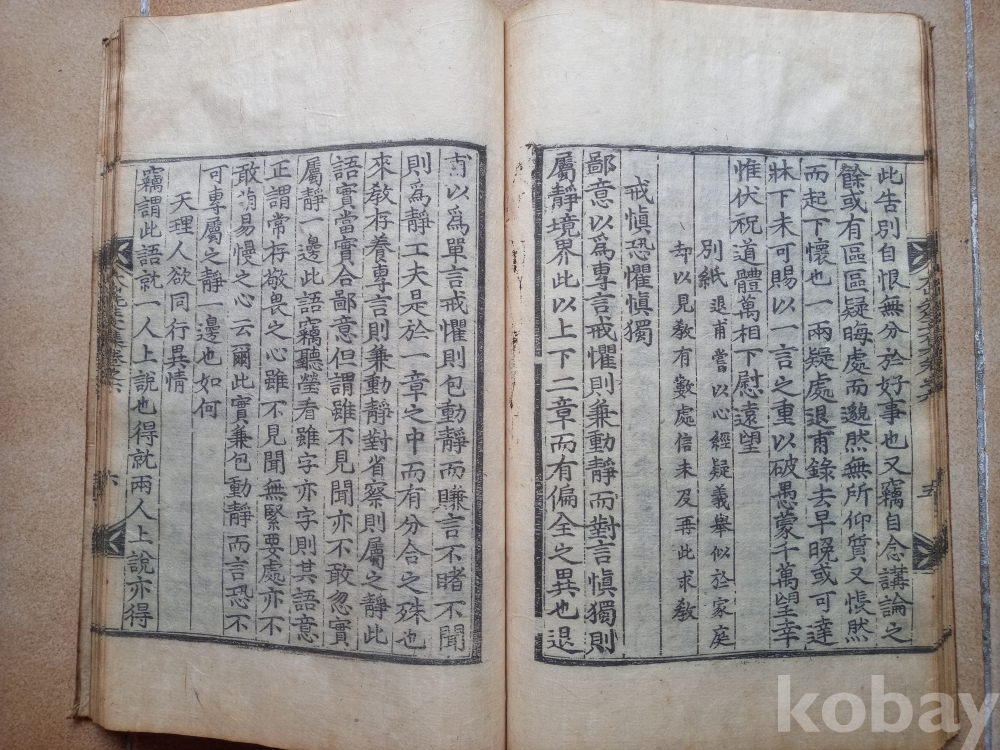 此告別自恨無分於好事也又竊自念講論之
餘或有區區疑晦處而邈然無所仰質又悵然
而起下懷也一兩疑處退甫錄去早晚或可達
牀下未可賜以一言之重以破愚蒙千萬望幸
惟伏祝道體萬相下慰遠望
別紙 退甫嘗以心經疑義舉似於家庭
却以見敎有數處信未及再此求敎
戒愼恐懼愼獨
鄙意以爲專言戒懼則兼動靜而對言愼獨則
屬靜境界此以上下二章而有偏全之異也退
甫以爲單言戒懼則包動靜而賺言不睹不聞
則爲靜工夫是於一章之中而有分合之殊也
來敎存養專言則兼動靜對省察則屬之靜此
語實當實合鄙意但謂雖不見聞亦不敢忽實
屬靜一邊此語竊聽瑩看雖字亦字則其語意
正謂常存敬畏之心雖不見聞無緊要處亦不
敢萌易慢之心云爾此實兼包動靜而言恐不
可專屬之靜一邊也如何
天理人欲同行異情
竊謂此語就一人上說也得就兩人上說亦得
五
六
kobay